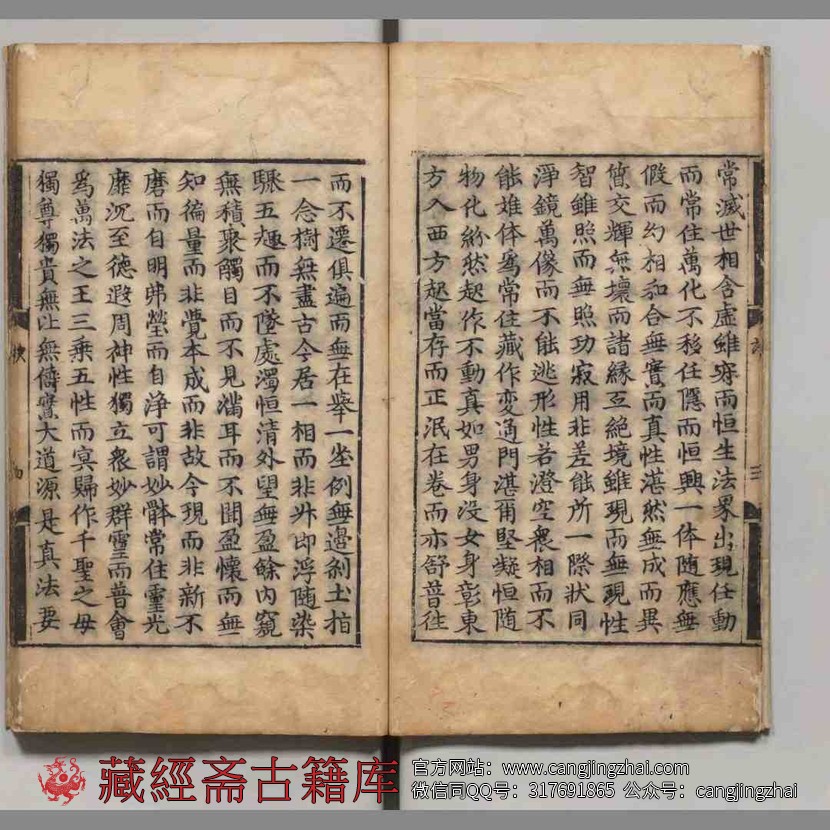 常滅世相含虛雖寂而恒生法界出現任動
而常住萬化不移任隱而恒興一体隨應無
假而幻相和合無實而真性湛然無成而異
質交輝無壞而諸緣互絕境雖現而無現性
智雖照而無照功寂用非差能所一際狀同
淨鏡萬像而不能逃形性若澄空衆相而不
能雄体爲常住藏作變通門湛爾堅凝恒隨
物化紛然起作不動真如男身没女身彰東
方入西方起當存而正泯在卷而亦舒普徃
而不遷俱遍而無在舉一坐例無邊刹土指
一念樹無盡古今居一相而非升即浮隨染
驟五趣而不墜處濁恒清外望無盈餘内窺
無積聚觸目而不見滿耳而不聞盈懷而無
知徧量而非覺本成而非故今現而非新不
磨而自明弗瑩而自淨可謂妙體常住靈光
靡沉至德遐周神性獨立衆妙群靈而普會
爲萬法之王三乘五性而冥歸作千聖之母
獨尊獨貴無比無儔實大道源是真法要
三
藏經斋古籍库
官方网站：www.cangjingzhai.com
微信同QQ号：317691865 公众号：cangjingzhai